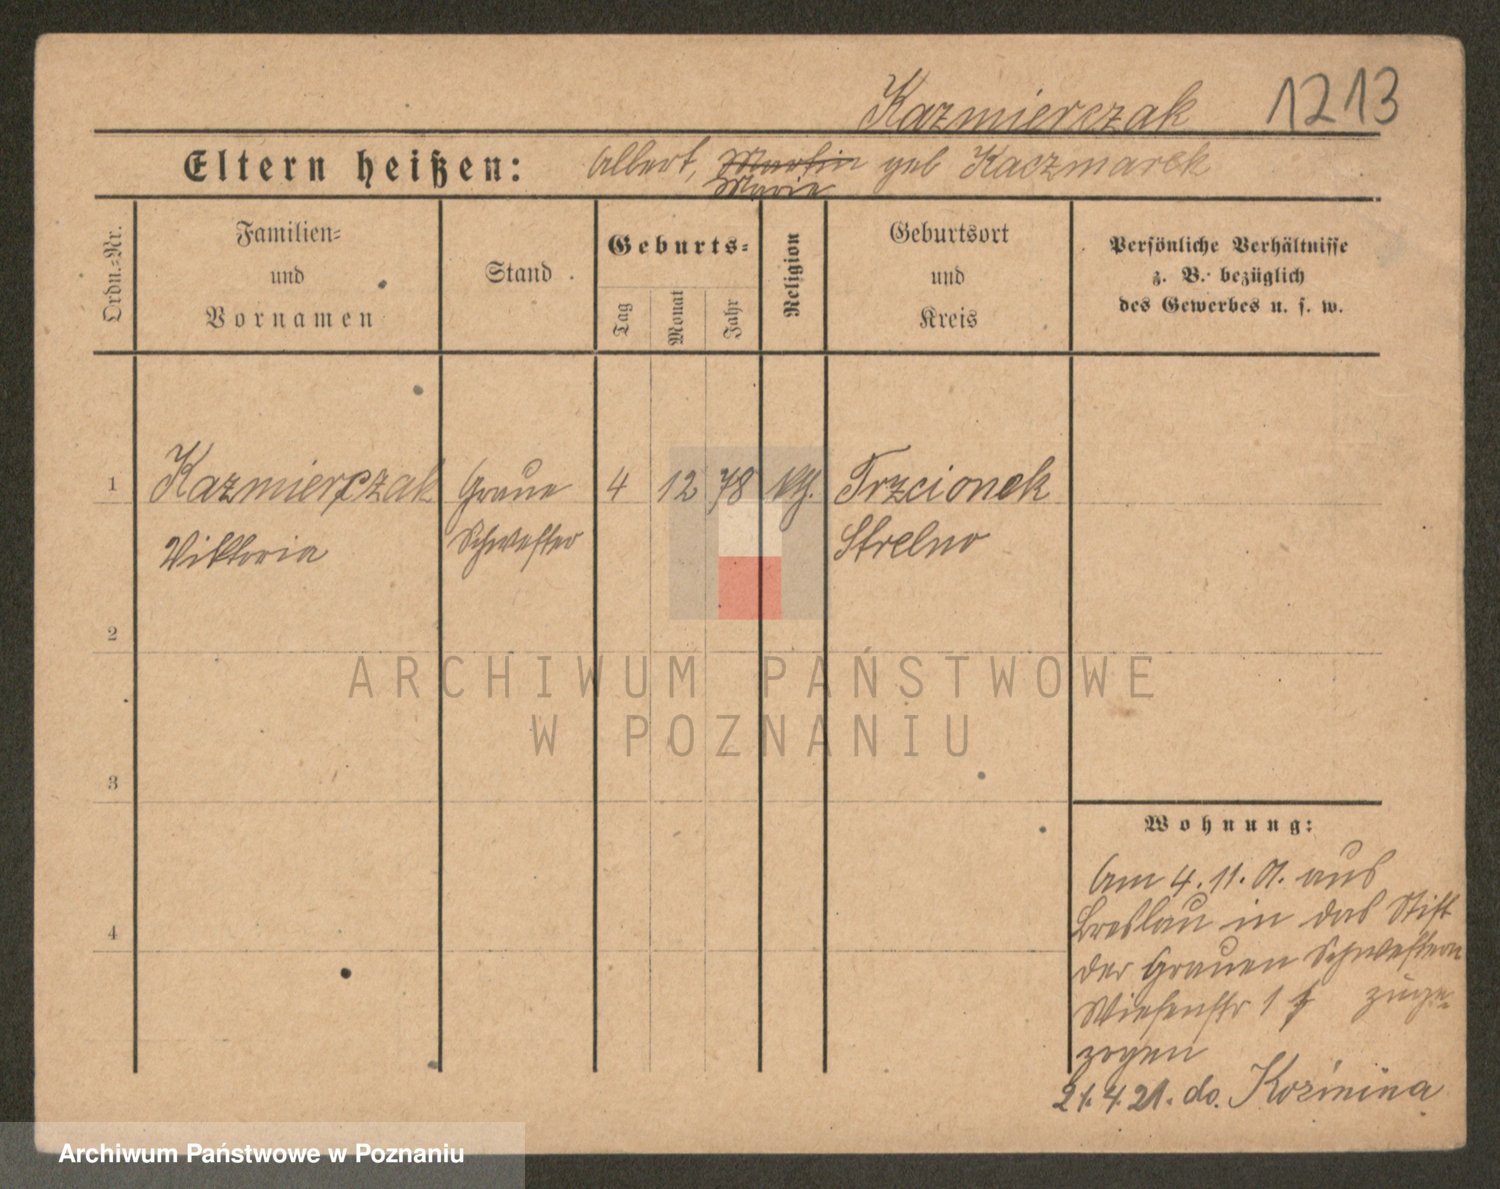 Kazmierczak 1213
Eltern heißen: Albert, Martin geb Kaczmarek
Marie
Ordn.-Nr.
Familien-
und
Vornamen
Stand
Geburts-
Tag
Monat
Jahr
Religion
Geburtsort
und
Kreis
Persönliche Verhältnisse
z. B. bezüglich
des Gewerbes u. s. w.
1 Kazmierczak Graue 4 12 78 kth. Trzcionek
Viktoria Schwester Strelno
2
3
4
Wohnung:
Am 4. 11. 01. aus
Breslau in das Stift
der Grauen Schwestern
Wiesenstr 1 zuge-
zogen
21. 4. 21. do. Kozmina
ARCHIWUM PAŃSTWOWE
W POZNANIU
Archiwum Państwowe w Poznaniu